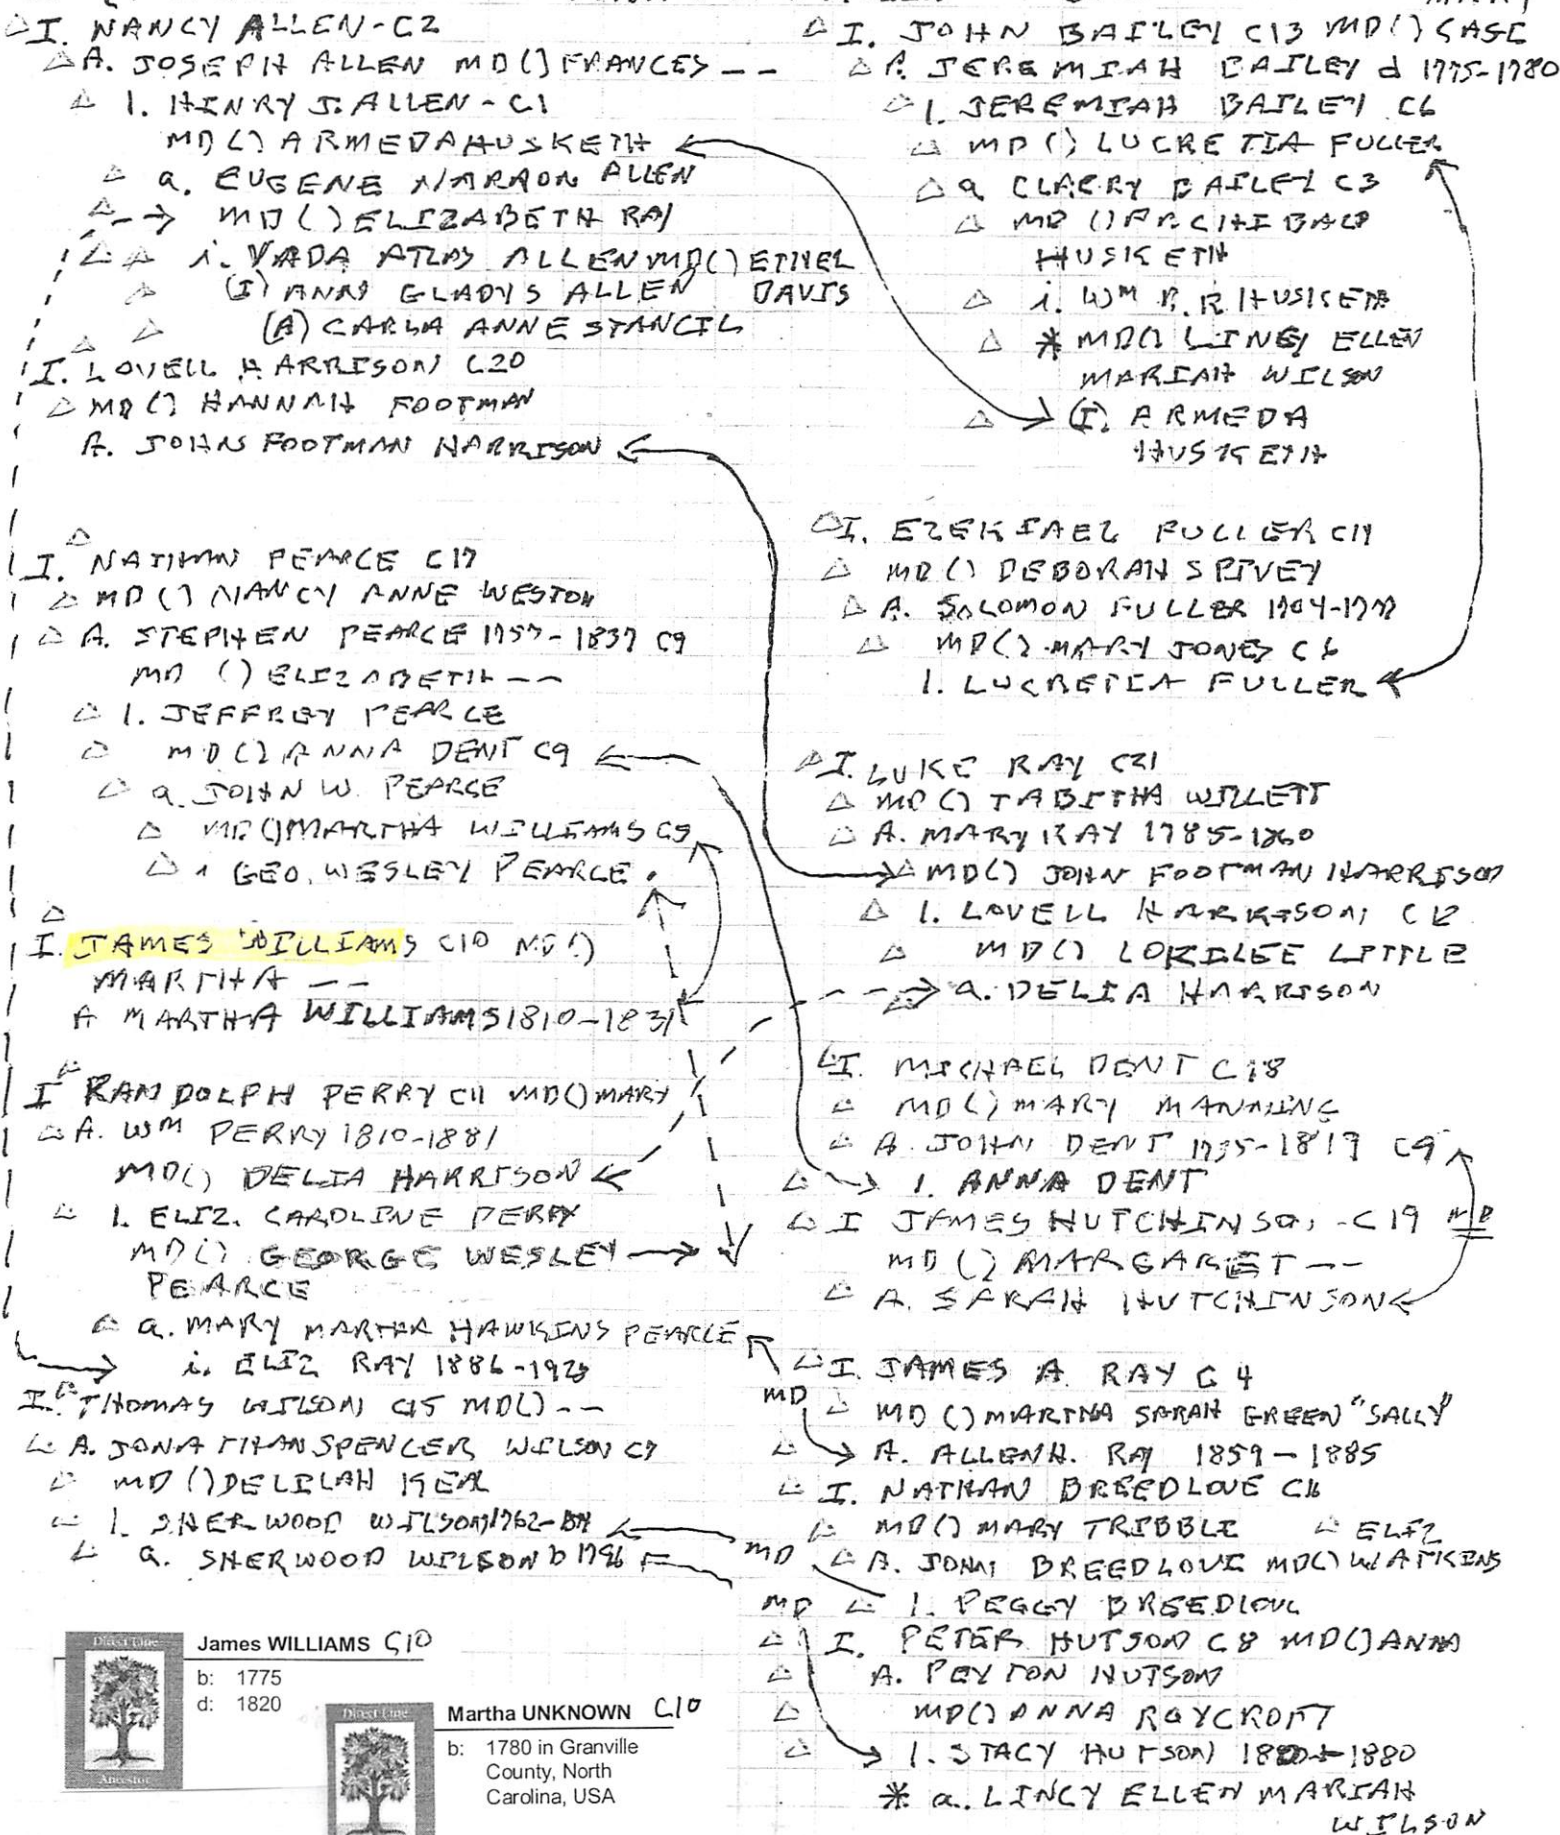 I. NANCY ALLEN-C2
A. JOSEPH ALLEN MD() FRANCES --
1. HINRY J. ALLEN - C1
MD() ARMEDA HUSKETH
a. EUGENE ALLEN
MD() ELIZABETH RAY
i. VADA ATLAS ALLEN MD() ETHEL
(I) ANN GLADYS ALLEN DAVIS
(A) CARLA ANNE STANCIL
I. LOVELL HARRISON C20
MD() HANNAH FOOTMAN
A. JOHN FOOTMAN HARRISON
I. NATHAN PEARCE C17
MD() NANCY ANNE WESTON
A. STEPHEN PEARCE 1757-1837 C9
MD () ELIZABETH --
1. JEFFREY PEARCE
MD() ANNA DENT C9
a. JOHN W. PEARCE
MD() MARTHA WILLIAMS C5
i GEO. WESLEY PEARCE.
I. JAMES WILLIAMS C10 MD()
MARTHA --
A MARTHA WILLIAMS 1810-1831
I RANDOLPH PERRY C11 MD() MARY
A. WM PERRY 1810-1881
MD() DELIA HARRISON
1. ELIZ. CAROLINE PERRY
MD() GEORGE WESLEY
PEARCE
a. MARY MARTHA HAWKINS PEARCE
i. ELIZ RAY 1886-1928
I. THOMAS WILSON C15 MD() --
A. JONATHAN SPENCER WILSON C7
MD () DELILAH KEAL
1. SHERWOOD WILSON 1762-
a. SHERWOOD WILSON b 1796
I. JOHN BAILEY C13 MD() CASE
A. JEREMIAH BAILEY d 1775-1780
1. JEREMIAH BAILEY C6
MD () LUCRETIA FULLER
a CLARRY BAILEY C3
MD () ARCHIBALD
HUSKETH
i. WM R. R. HUSKETH
* MD() LINCY ELLEN
MARIAH WILSON
(I). ARMEDA
HUSKETH
I. EZEKIAEL FULLER C14
MD () DEBORAH SPIVEY
A. SOLOMON FULLER 1704-1777
MD() MARY JONES C6
1. LUCRETIA FULLER
I. LUKE RAY C21
MD () TABITHA WILLETT
A. MARY RAY 1785-1860
MD() JOHN FOOTMAN HARRISON
1. LOVELL HARRISON C12
MD() LORILEE LITTLE
a. DELIA HARRISON
I. MICHAEL DENT C18
MD() MARY MANNING
A. JOHN DENT 1735-1819 C9
1. ANNA DENT
I JAMES HUTCHINSON - C19 MD
MD () MARGARET --
A. SARAH HUTCHINSON
I. JAMES A. RAY C4
MD
MD () MARTHA SARAH GREEN "SALLY"
A. ALLEN H. RAY 1859-1885
I. NATHAN BREEDLOVE C16
MD() MARY TRIBBLE ELIZ
MD
A. JOHN BREEDLOVE MD() WATKINS
MD 1. PEGGY BREEDLOVE
I. PETER HUTSON C8 MD() ANNA
A. PEYTON HUTSON
MD() ANNA ROYCROFT
1. STACY HUTSON 1880
* a. LINCY ELLEN MARIAH
WILSON
Direct Line
Ancestor
James WILLIAMS C10
b: 1775
d: 1820
Direct Line
Martha UNKNOWN C10
b: 1780 in Granville
County, North
Carolina, USA